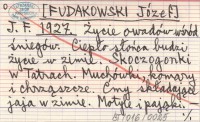 [FUDAKOWSKI Józef]
J. F. 1927. Życie owadów wśród
śniegów. Ciepło słońca budzi
życie w zimie. Skoczogonki
w Tatrach. Muchówki, komary
i chrząszcze. Ćmy składające
jaja w zimie. Motyle i pająki.
B/016/0025